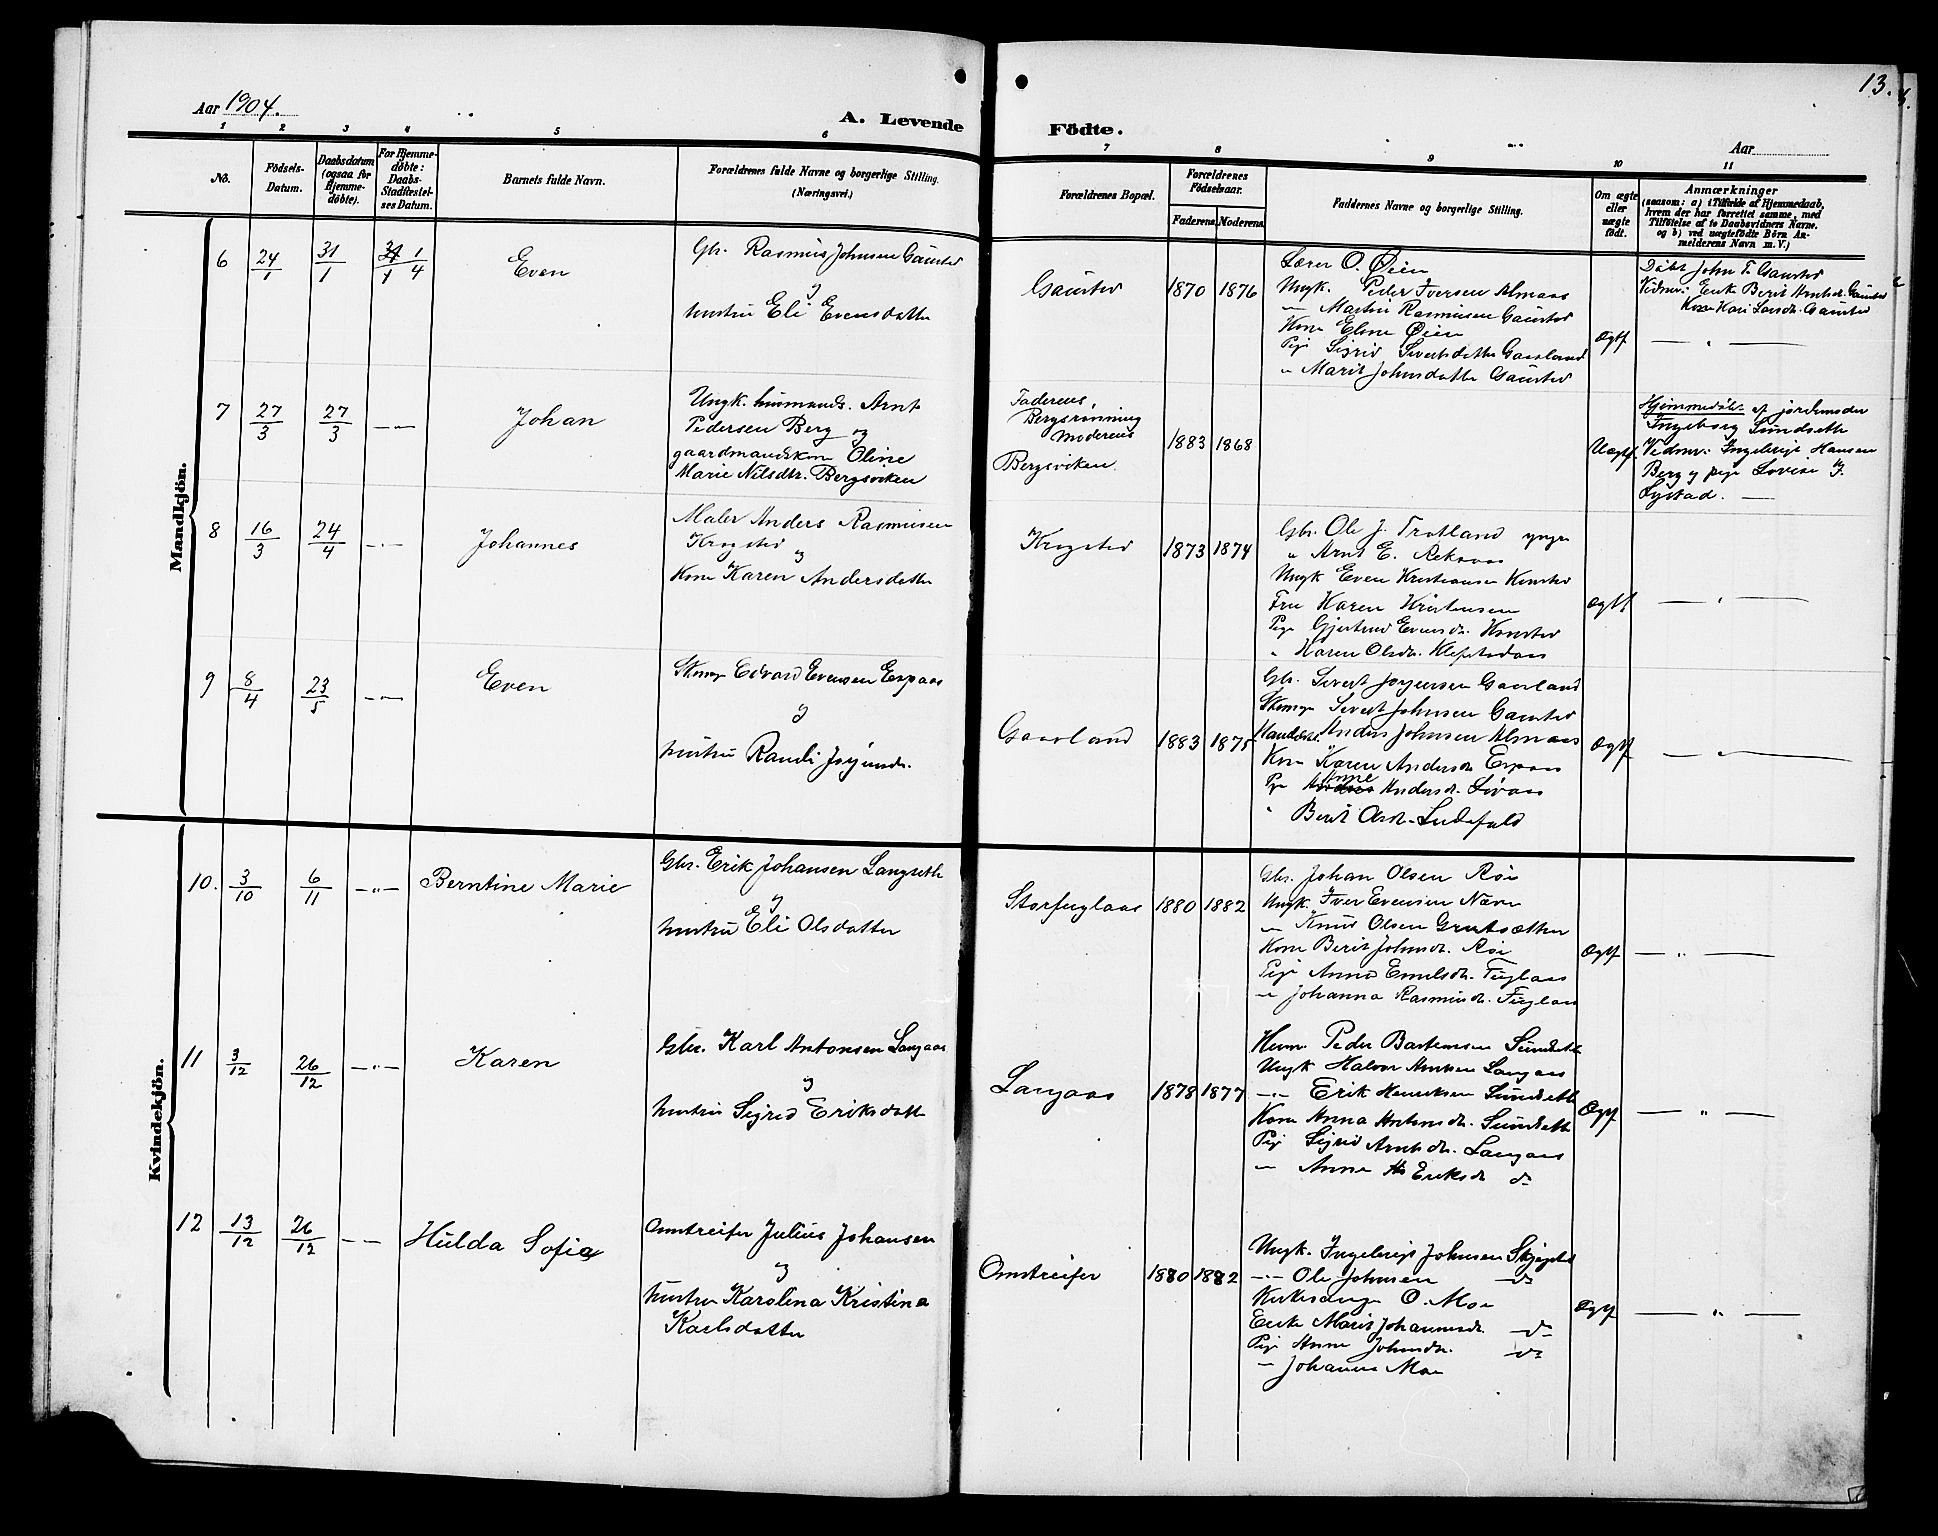 Aar 1904.
A. Levende
Födte.
13.
Aar
1 2 3 4 5 6
7 8 9 10 11
No.
Födsels-
Datum.
Daabsdatum
(ogsaa for
Hjemme-
döbte).
For Hjemme-
döbte:
Daabs-
Stadfæstel-
ses Datum.
Barnets fulde Navn.
Forældrenes fulde Navne og borgerlige Stilling.
(Næringsvei.)
Forældrenes Bopæl.
Forældrenes
Födselsaar.
Faderens.
Moderens.
Faddernes Navne og borgerlige Stilling.
Om ægte
eller
uægte
födt.
Anmærkninger
(saasom: a) i Tilfælde af Hjemmedaab,
hvem der har forrettet samme, med
Tilföielse af to Daabsvidners Navne.
og b) ved uægtefödte Börn An-
melderens Navn m. V.)
Mandkjön.
6 24/1 31/1 1/4
Even
Gbr. Rasmus Johnsen Gaustad
g
hustru Eli Evensdatter
Gaustad
1870 1876
Lærer O. Øien
Ungk. Peder Iversen Almaas
" Martin Rasmusen Gaustad
Kone Eline Øien
Pige Sigrid Sivertsdatter Gaasland
" Marit Johnsdatter Gaustad
Ægte
Døbt John T. Gaustad
Vidner: Enke Berit Arntsd. Gaustad
Kone Kari Larsdr. Gaustad
7 27/3 27/3 — " —
Johan
Ungk. husmands. Arnt
Pedersen Berg og
gaardmandskone Oline
Marie Nilsdtr. Bergsviken
Faderens,
Bergsrønning
Moderens
Bergsviken
1883 1868
Uægte.
Hjemmedøbt af jordemoder
Ingeborg Sundseth
Vidner: Ingebrigt Hansen
Berg g pige Lovise J.
Lystad.
8 16/3 24/4 — " —
Johannes
Maler Anders Rasmusen
Krogstad
g
Kone Karen Andersdatter
Krogstad
1873 1874
Gbr. Ole J. Trotland yngre
" Arnt E.
Ungk Even Kristiansen
Fru Karen Kristensen
Pige Gjertrud Evensdr.
" Karen Olsdr.
Ægte
9 8/4 23/5 — " —
Even
Edvard Evensen Espaas
g
hustru Randi Jørgensdr.
Gaasland
1883 1875
Gbr. Sivert Jørgensen Gaasland
Sivert Johnsen Gaustad
Anders Johnsen Almaas
Kone Karen Andersdr Espaas
Pige Anne Andersdr. Løvaas
" Berit Olsdr.
Ægte
Kvindekjön.
10. 3/10 6/11 — " —
Berntine Marie
Gbr. Erik Johansen Langseth
g
hustru Eli Olsdatter
Storfuglaas
1880 1882
Gbr. Johan Olsen Røe
Ungk. Iver Evensen Næve
" Knud Olsen Grutsæther
Kone Berit Johnsdr. Røe
Pige Anna Emelsdr. Fuglaas
" Johanna Rasmusdr. Fuglaas
Ægte
11 3/12 26/12 — " —
Karen
Gbr. Karl Antonsen Langaas
g
hustru Sigrid Eriksdatter
Langaas
1878 1877
Husm. Peder Bastensen Sundseth
Ungk Halvor Arntsen Langaas
" Erik Henriksen Sundseth
Kone Anna Antonsdr. Sundseth
Pige Sigrid Arntsdr. Langaas
" Anne Eriksdr do
Ægte
12 13/12 26/12 — —
Hulda Sofia
Omstreifer Julius Johansen
g
hustru Karolina Kristina
Karlsdatter
Omstreifer
1880 1882
Ungk. Ingebrigt Johnsen
" Ole Johnsen do
Kirkesanger O. Moe
Enke Marit Johannesdr. do
Pige Anne Johnsdr. do
" Johanna Moe
Ægte